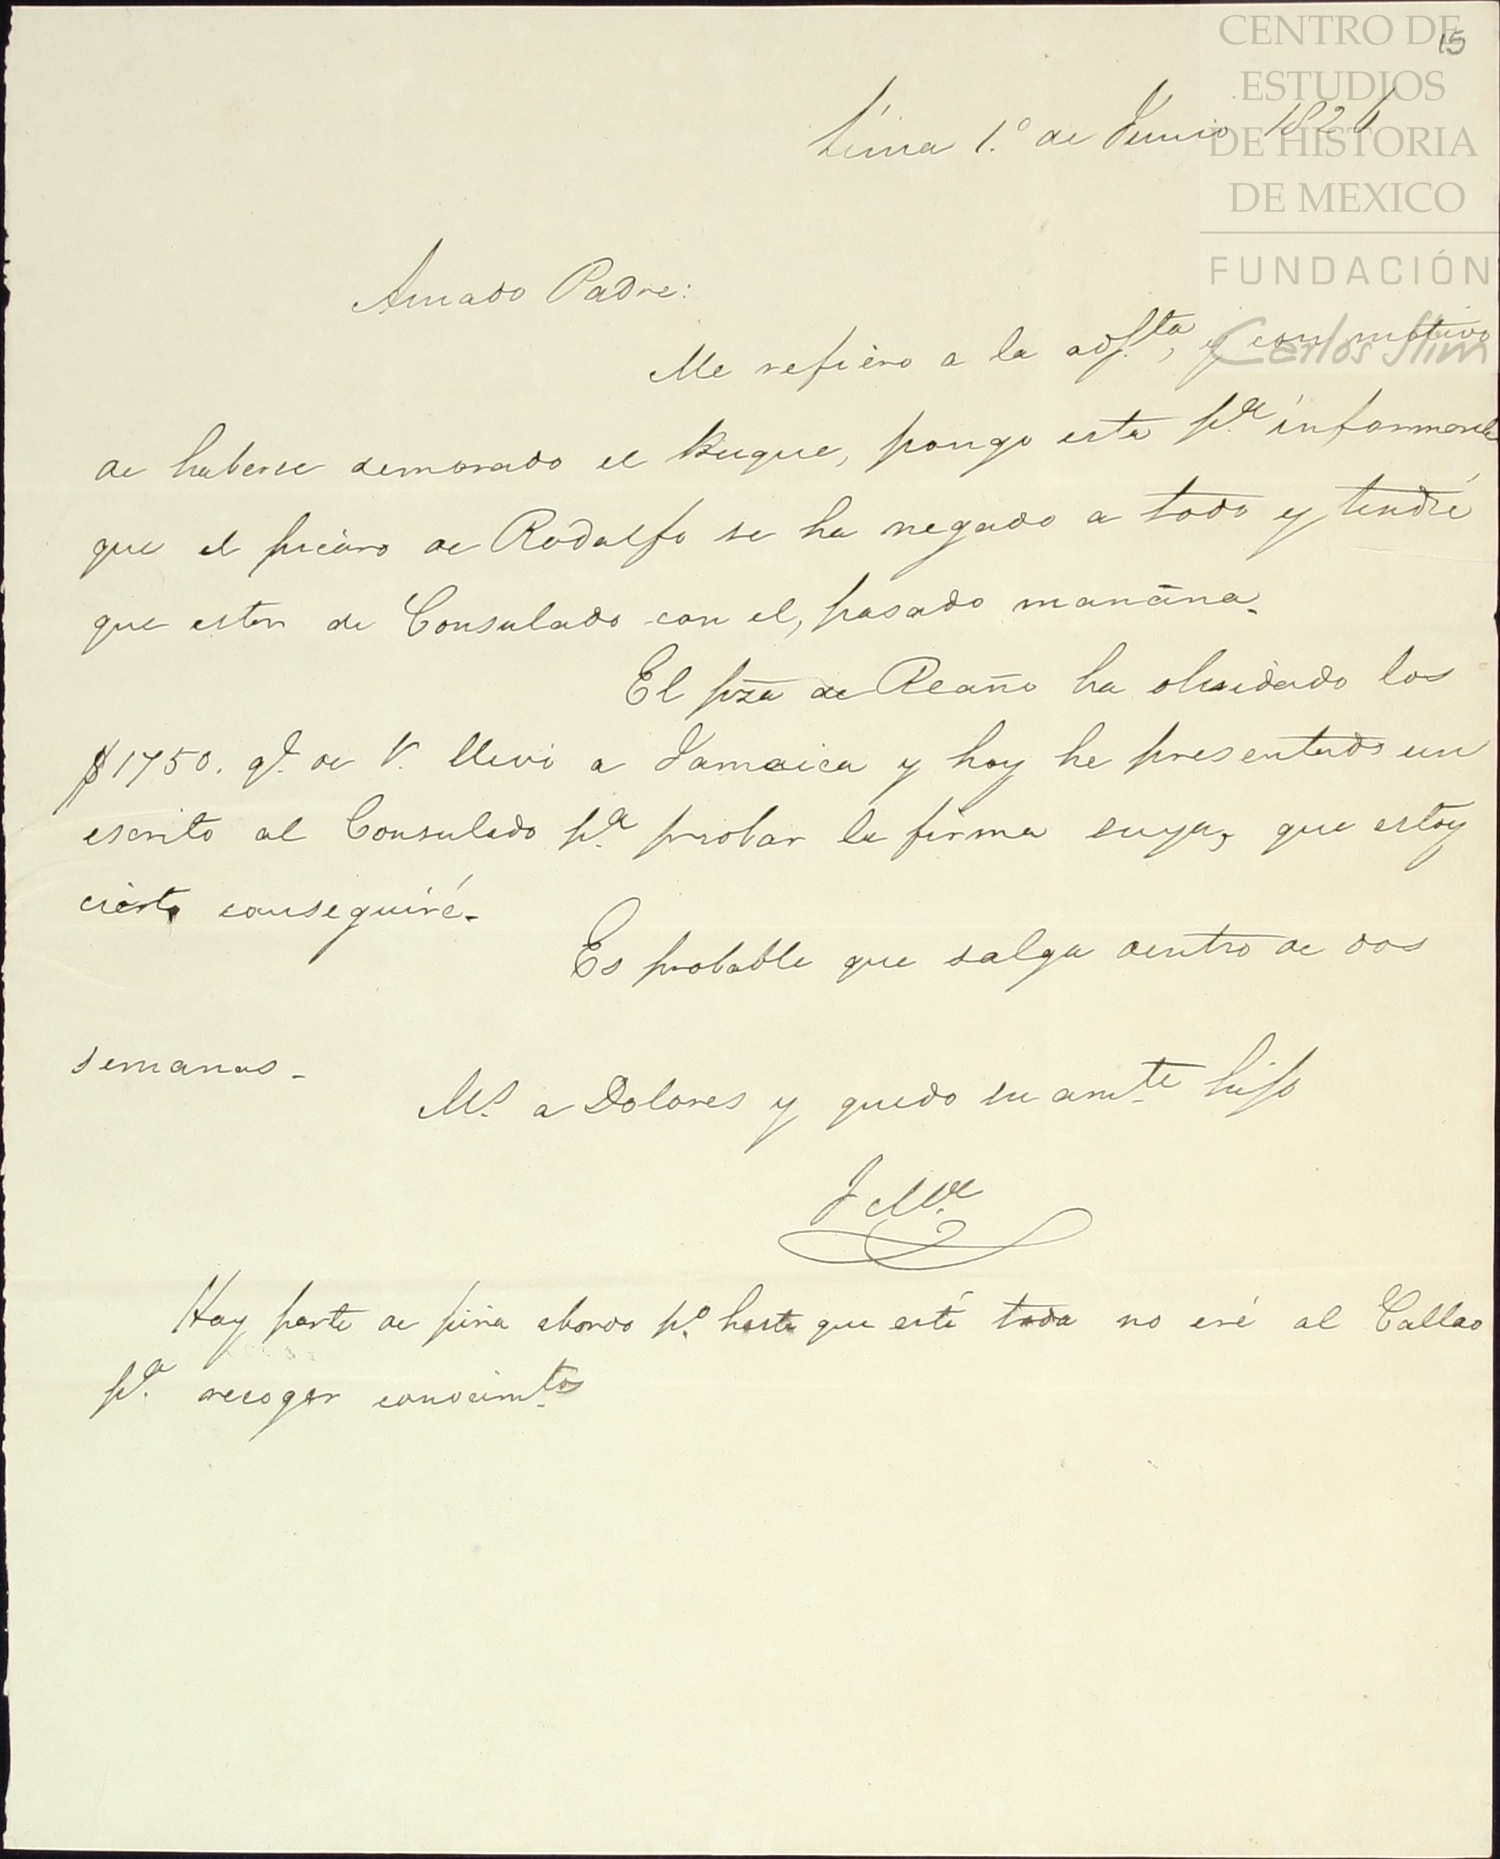 CENTRO DE
ESTUDIOS
DE HISTORIA
DE MEXICO
FUNDACIÓN
Carlos Slim
15
Lima 1.º de Junio 1826
Amado Padre:
Me refiero a la adj.ta, y con motivo
de haberse demorado el Buque, pongo esta p.a informarle
que el picaro de Rodolfo se ha negado a todo y tendré
que estar de Consulado con el, pasado mañana.
El pza de Reaño ha olvidado los
$1750. q.e de V. llevó a Jamaica y hoy he presentado un
escrito al Consulado p.a probar la firma suya, que estoy
cierto conseguiré.
Es probable que salga dentro de dos
semanas.
M.s a Dolores y quedo su am.te hijo
J M.l
Hay parte de piña abordo p.o hasta que esté toda no iré al Callao
p.a recoger conocim.tos